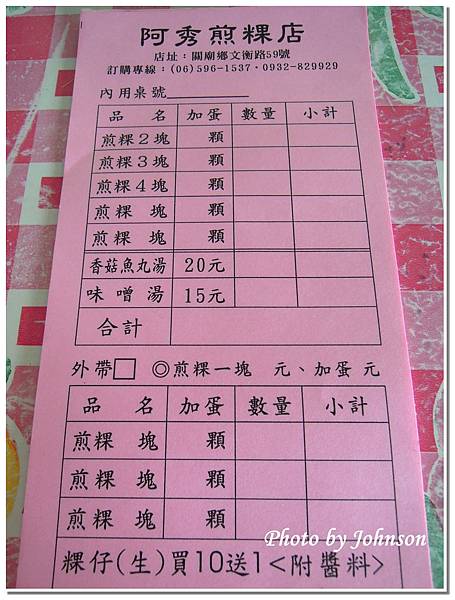 阿秀煎粿店
店址：關廟鄉文衡路59號
訂購專線：(06)596-1537·0932-829929
內用桌號
品名 加蛋 數量 小計
煎粿2塊 顆
煎粿3塊 顆
煎粿4塊 顆
煎粿 塊 顆
煎粿 塊 顆
香菇魚丸湯 20元
味噌湯 15元
合計
外帶□ ◎煎粿一塊 元、加蛋 元
品名 加蛋 數量 小計
煎粿 塊 顆
煎粿 塊 顆
煎粿 塊 顆
粿仔(生)買10送1<附醬料>
Photo by Johnson